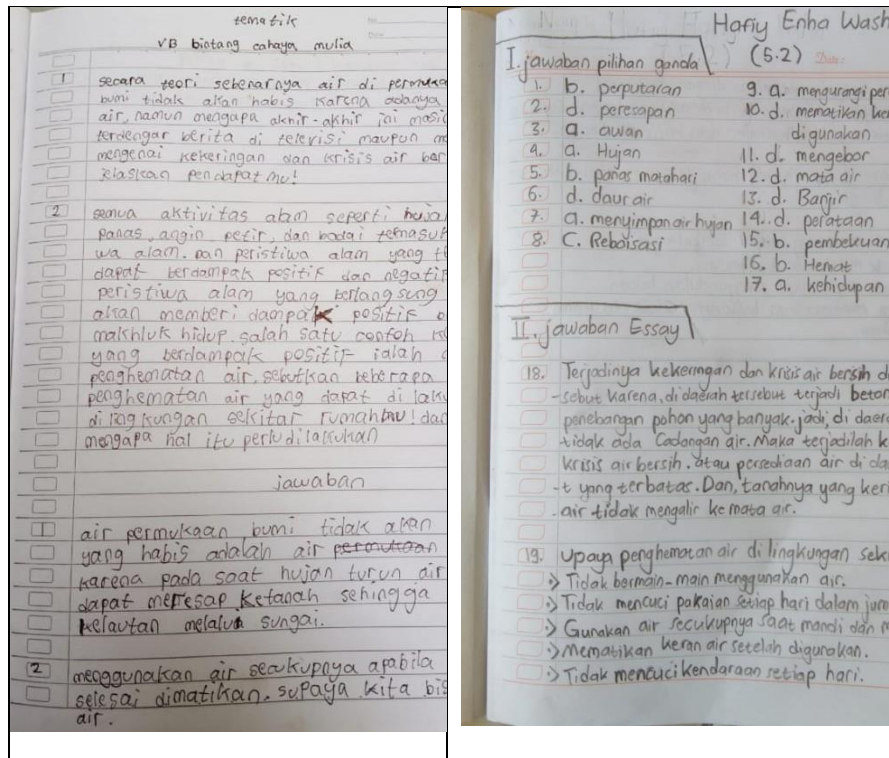 tematik
VB bintang cahaya mulia
1 secara teori sebenarnya air di permuka
bumi tidak akan habis karena adanya
air, namun mengapa akhir-akhir ini masi
terdengar berita di televisi maupun
mengenai kekeringan dan krisis air ber
jelaskan pendapat mu!
2 semua aktivitas alam seperti huja
panas, angin, petir, dan badai termasuk
wa alam. Dan peristiwa alam yang
dapat berdampak positif dan negatif
peristiwa alam yang berlangsung
akan memberi dampak positif
makhluk hidup. salah satu contoh
yang berdampak positif ialah
penghematan air, sebutkan beberapa
penghematan air yang dapat di laku
di lingkungan sekitar rumahmu! dan
mengapa hal itu perlu dilakukan
jawaban
1 air permukaan bumi tidak akan
yang habis adalah air
karena pada saat hujan turun air
dapat meresap ketanah sehingga
kelautan melalui sungai.
2 menggunakan air secukupnya apabila
selesai dimatikan, supaya kita bis
air.
Hafiy Enha Wash
(5.2)
I. jawaban pilihan ganda
1. b. perputaran
2. d. peresapan
3. a. awan
4. a. Hujan
5. b. panas matahari
6. d. daur air
7. a. menyimpan air hujan
8. C. Reboisasi
9. a. mengurangi per
10. d. mematikan ke
digunakan
11. d. mengebor
12. d. mata air
13. d. Banjir
14. d. perataan
15. b. pembekuan
16. b. Hemat
17. a. kehidupan
II. jawaban Essay
18. Terjadinya kekeringan dan krisis air bersih d
-sebut karena, di daerah tersebut terjadi beton
penebangan pohon yang banyak. jadi, di daer
tidak ada Cadangan air. Maka terjadilah k
krisis air bersih. atau persediaan air di da
-t yang terbatas. Dan, tanahnya yang keri
air tidak mengalir ke mata air.
19. Upaya penghematan air di lingkungan sek
> Tidak bermain-main menggunakan air.
> Tidak mencuci pakaian setiap hari dalam jum
> Gunakan air secukupnya saat mandi dan m
> Mematikan keran air setelah digunakan.
> Tidak mencuci kendaraan setiap hari.